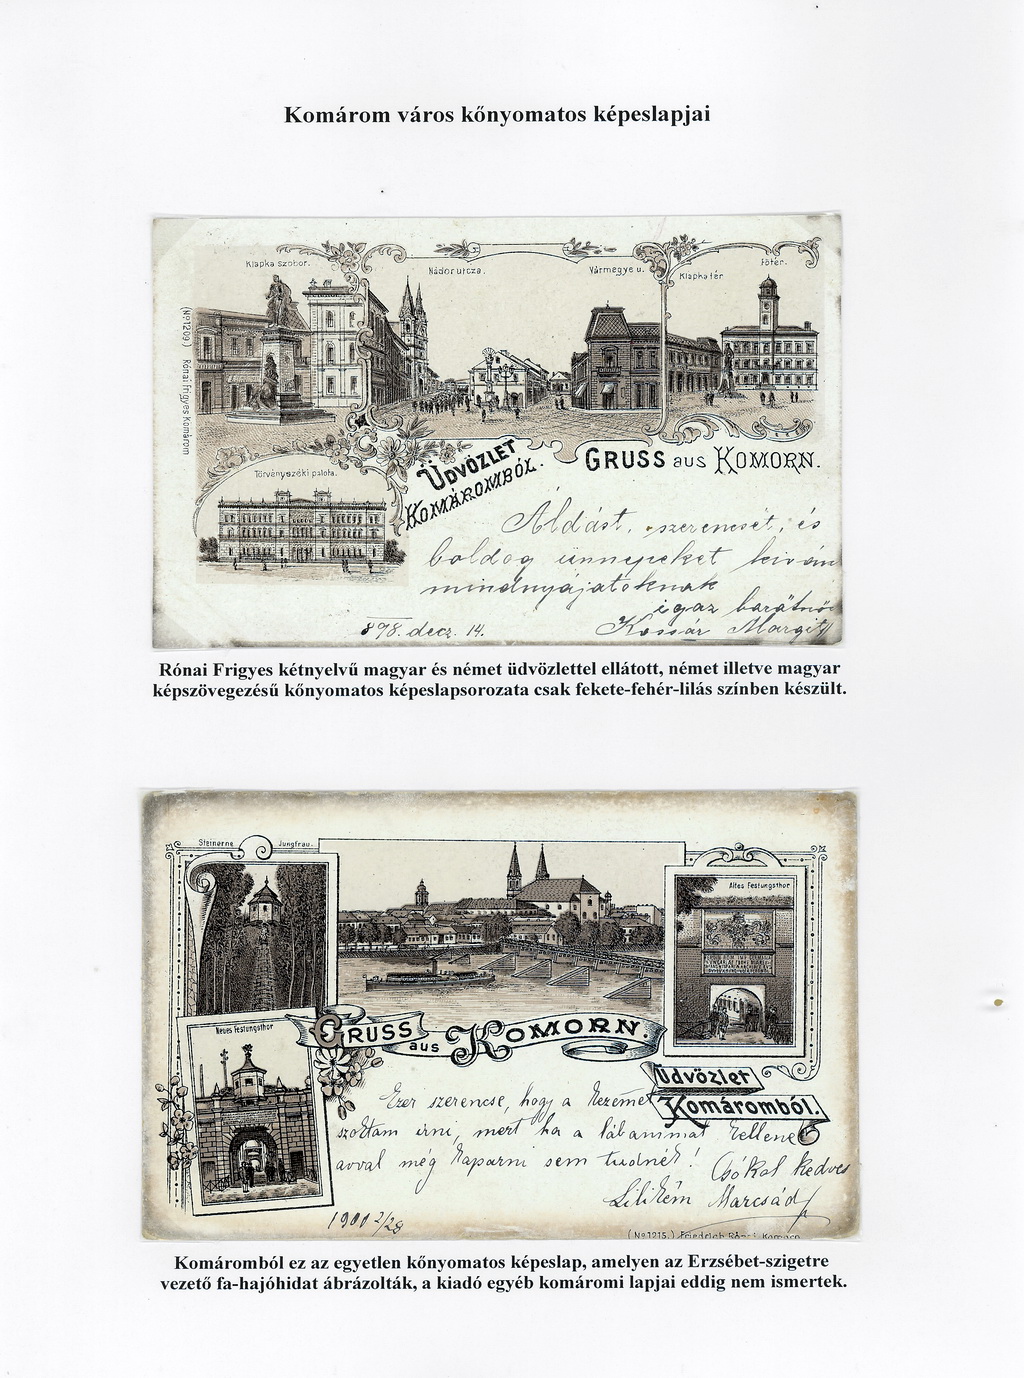 Komárom város kőnyomatos képeslapjai
Klapka szobor.
Nádor utcza.
Vármegye u.
Klapka tér
Főtér.
(Nº 1209.) Rónai Frigyes Komárom
ÜDVÖZLET
KOMÁROMBÓL.
GRUSS aus KOMORN.
Törvényszéki palota.
Áldást, szerencsét, és
boldog ünnepeket kiván
mindnyájatoknak
igaz barátnő
Kossár Margit
898. decz. 14.
Rónai Frigyes kétnyelvű magyar és német üdvözlettel ellátott, német illetve magyar
képszövegezésű kőnyomatos képeslapsorozata csak fekete-fehér-lilás színben készült.
Steinerne Jungfrau.
Altes Festungsthor
Neues Festungsthor
GRUSS aus KOMORN.
Üdvözlet
Komáromból.
Ezer szerencse, hogy a kezemet
szoktam irni, mert ha a lábammal kellene
avval még kaparni sem tudnék! Csókol kedves
Lilikém Marcsád
1901 2/28
(Nº 1215.) Friedrich Rónai Komorn
Komáromból ez az egyetlen kőnyomatos képeslap, amelyen az Erzsébet-szigetre
vezető fa-hajóhidat ábrázolták, a kiadó egyéb komáromi lapjai eddig nem ismertek.